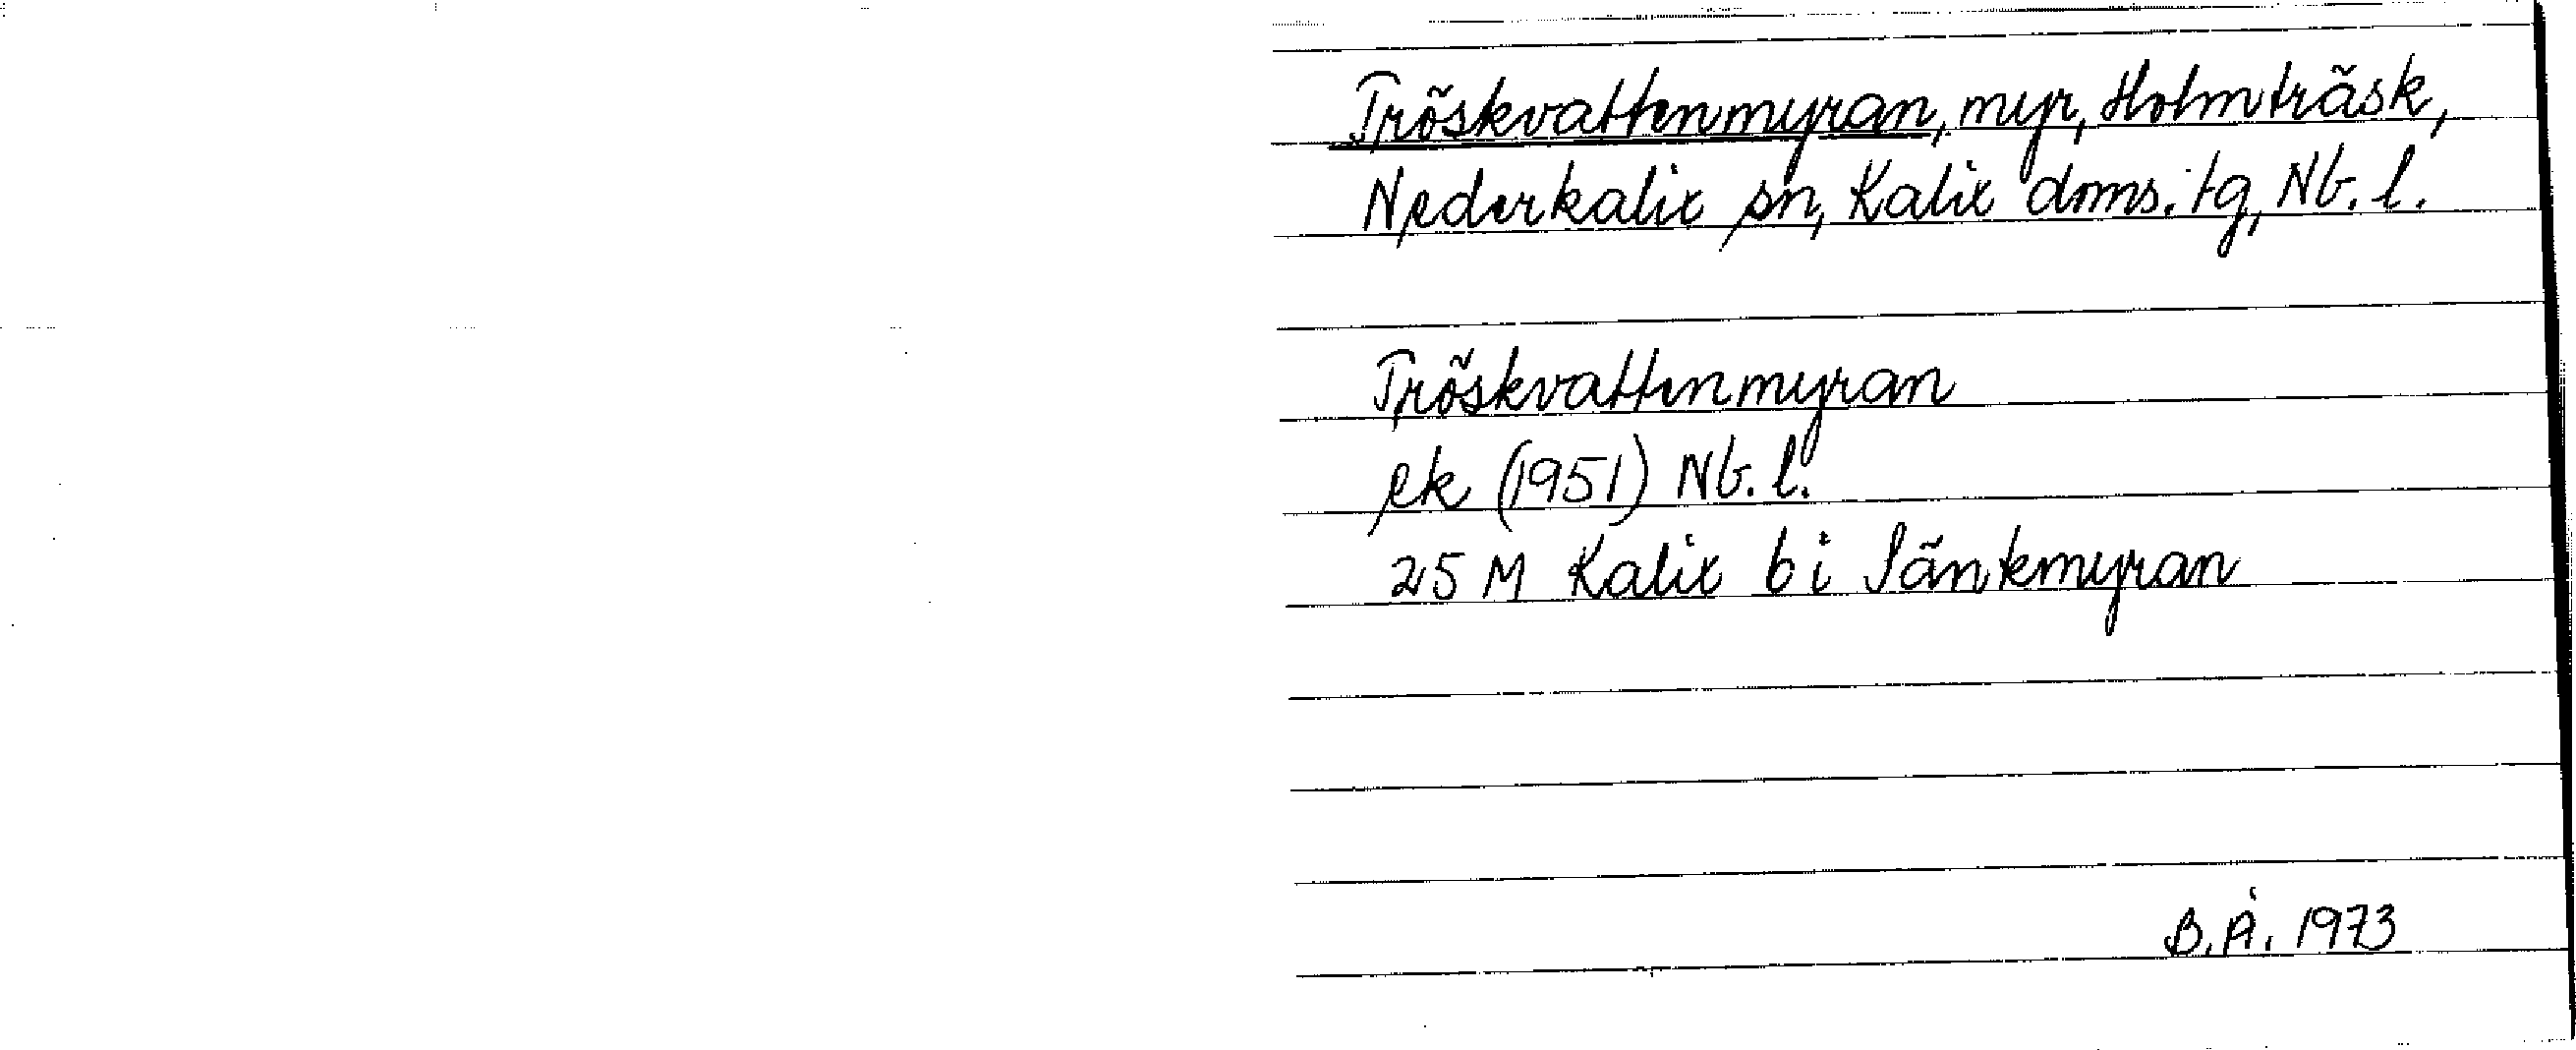 Tröskvattenmyran, myr, Holmträsk,
Nederkalix sn, Kalix doms. tg, Nb. l.
Tröskvattenmyran
ek (1951) Nb. l.
25 M Kalix 6 i Sänkmyran
B.Å. 1973